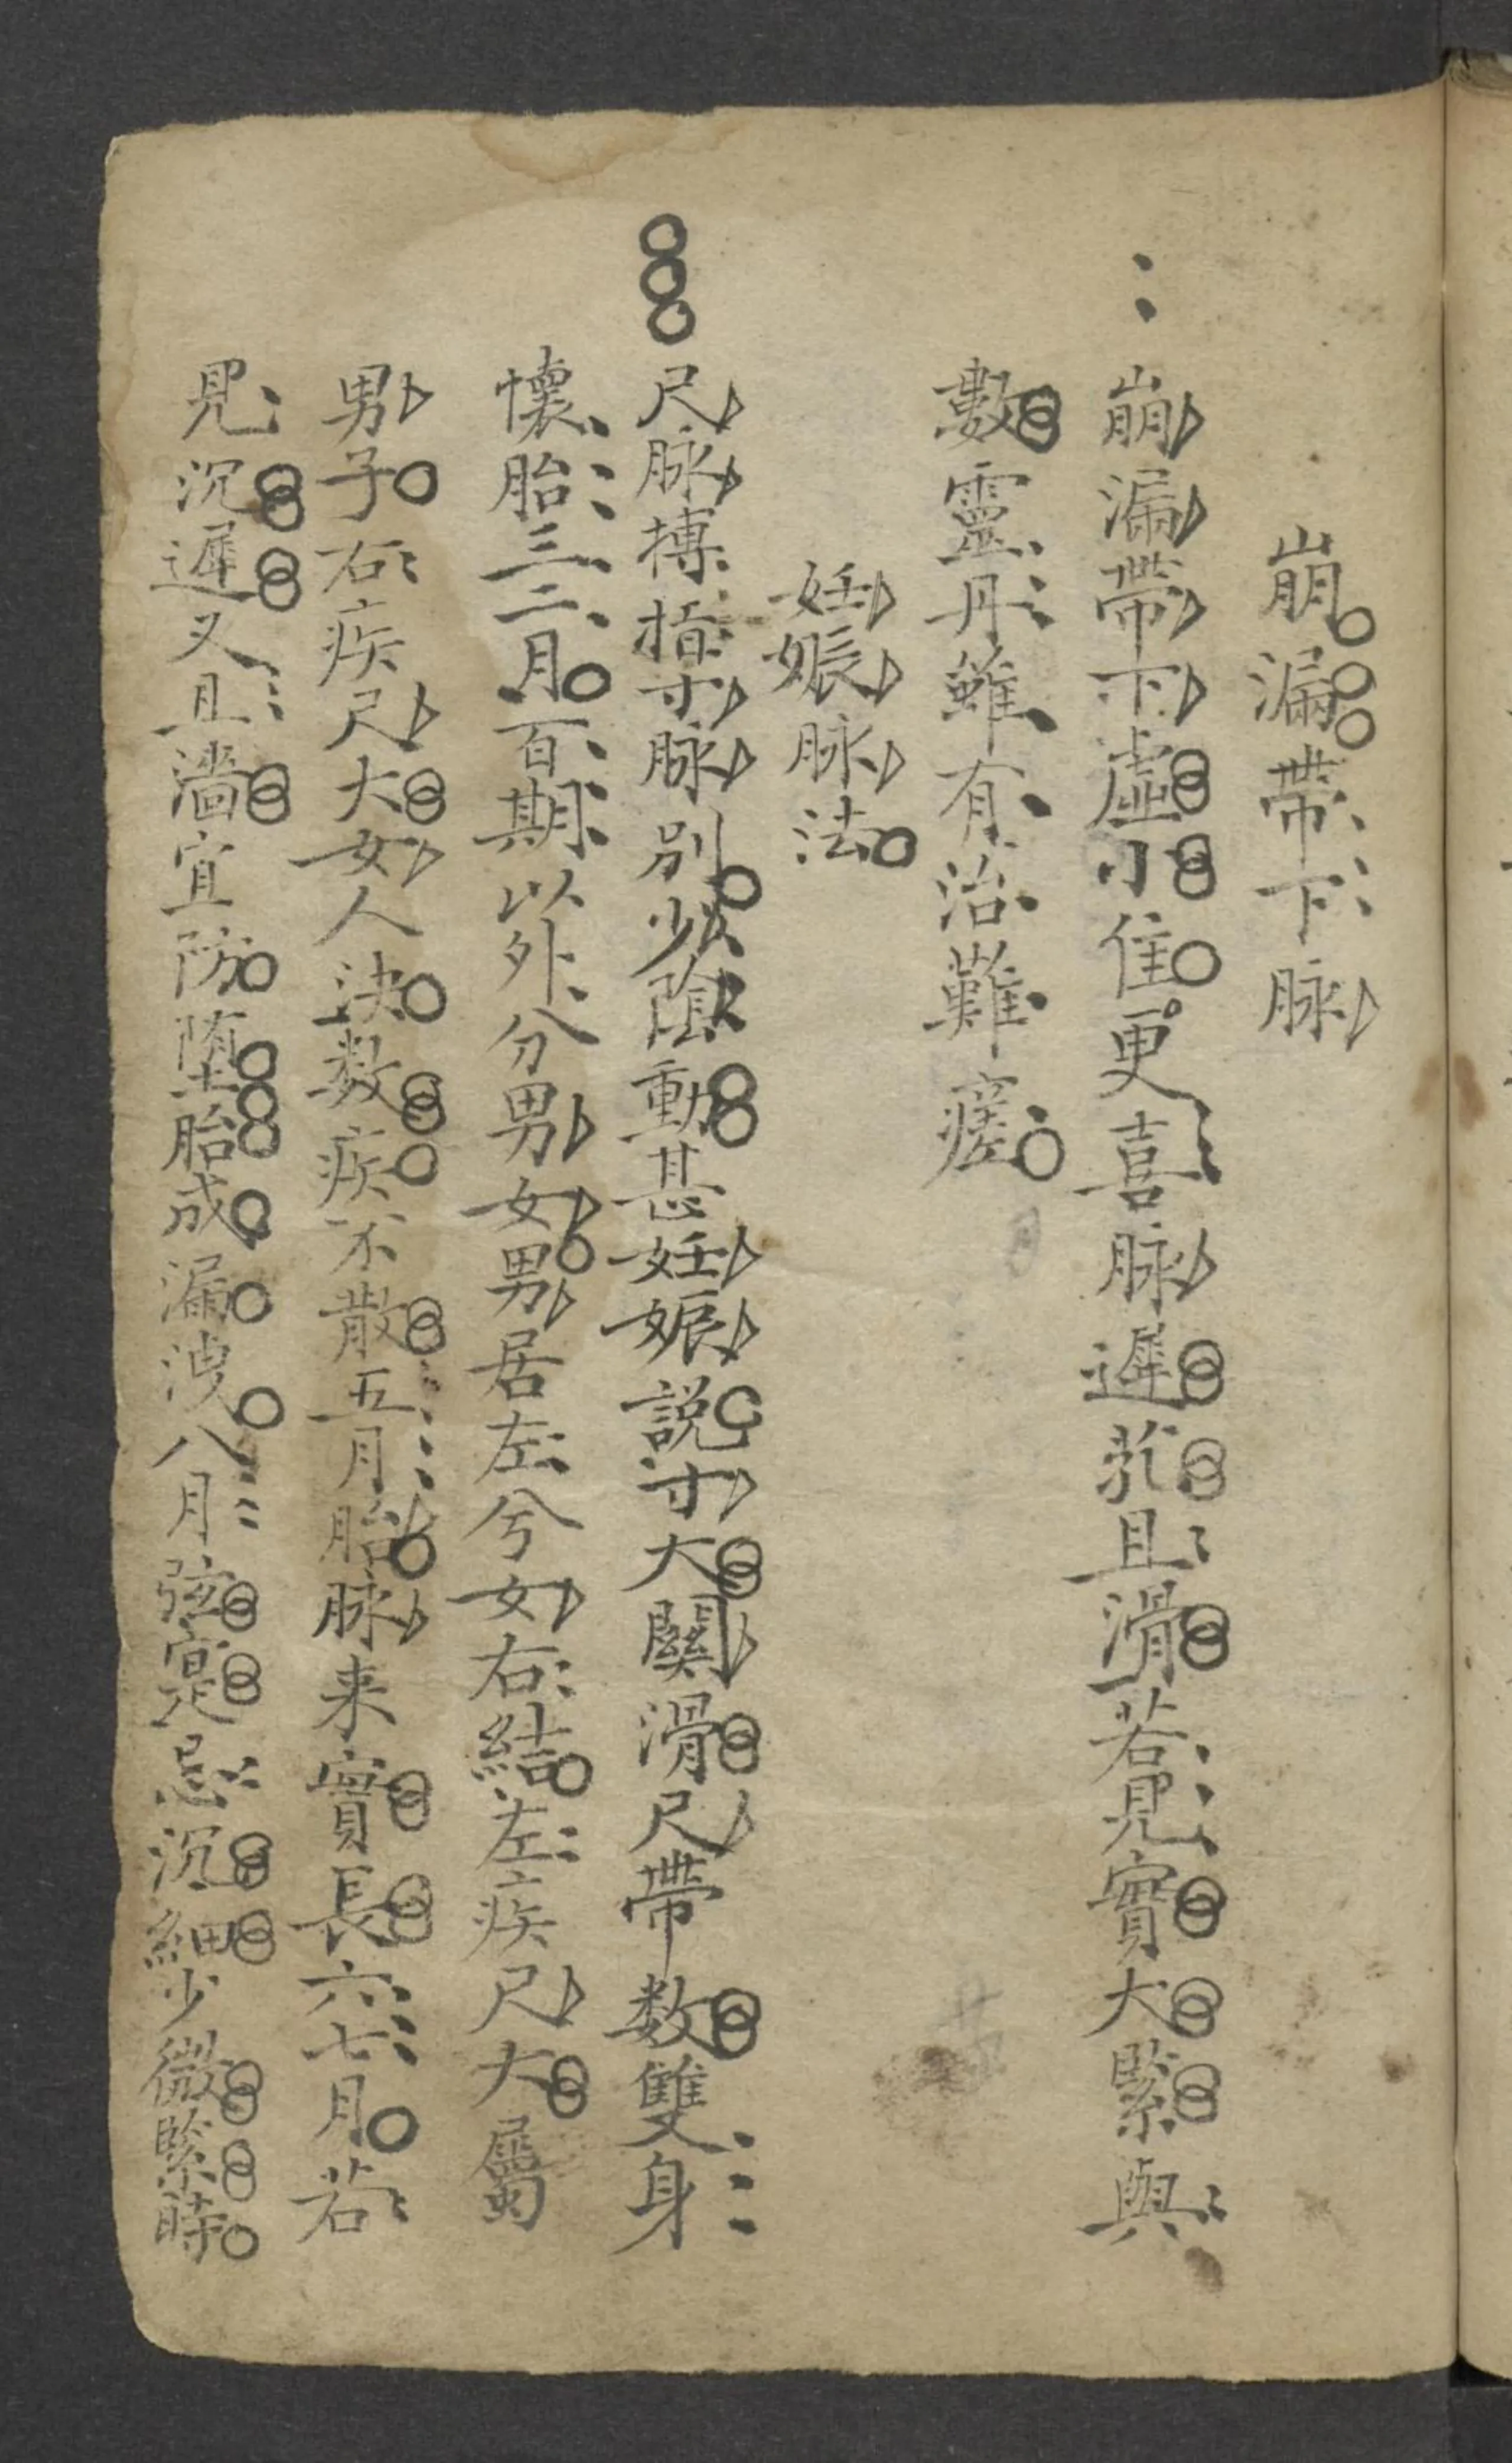 崩漏帶下脉
崩漏帶下虛小佳更喜脉遲芤且滑若見實大緊與
數靈丹雖有治難瘥
妊娠脉法
尺脉搏指寸脉別少陰動甚妊娠説寸大關滑尺帶数雙身
懷胎三二月百期以外分男女男居左兮女右結左疾尺大屬
男子右疾尺大女人決数疾不散五月胎脉来實長六七月若
見沉遲又且濇宜防墮胎成漏洩八月弦寔忌沉細少微緊時